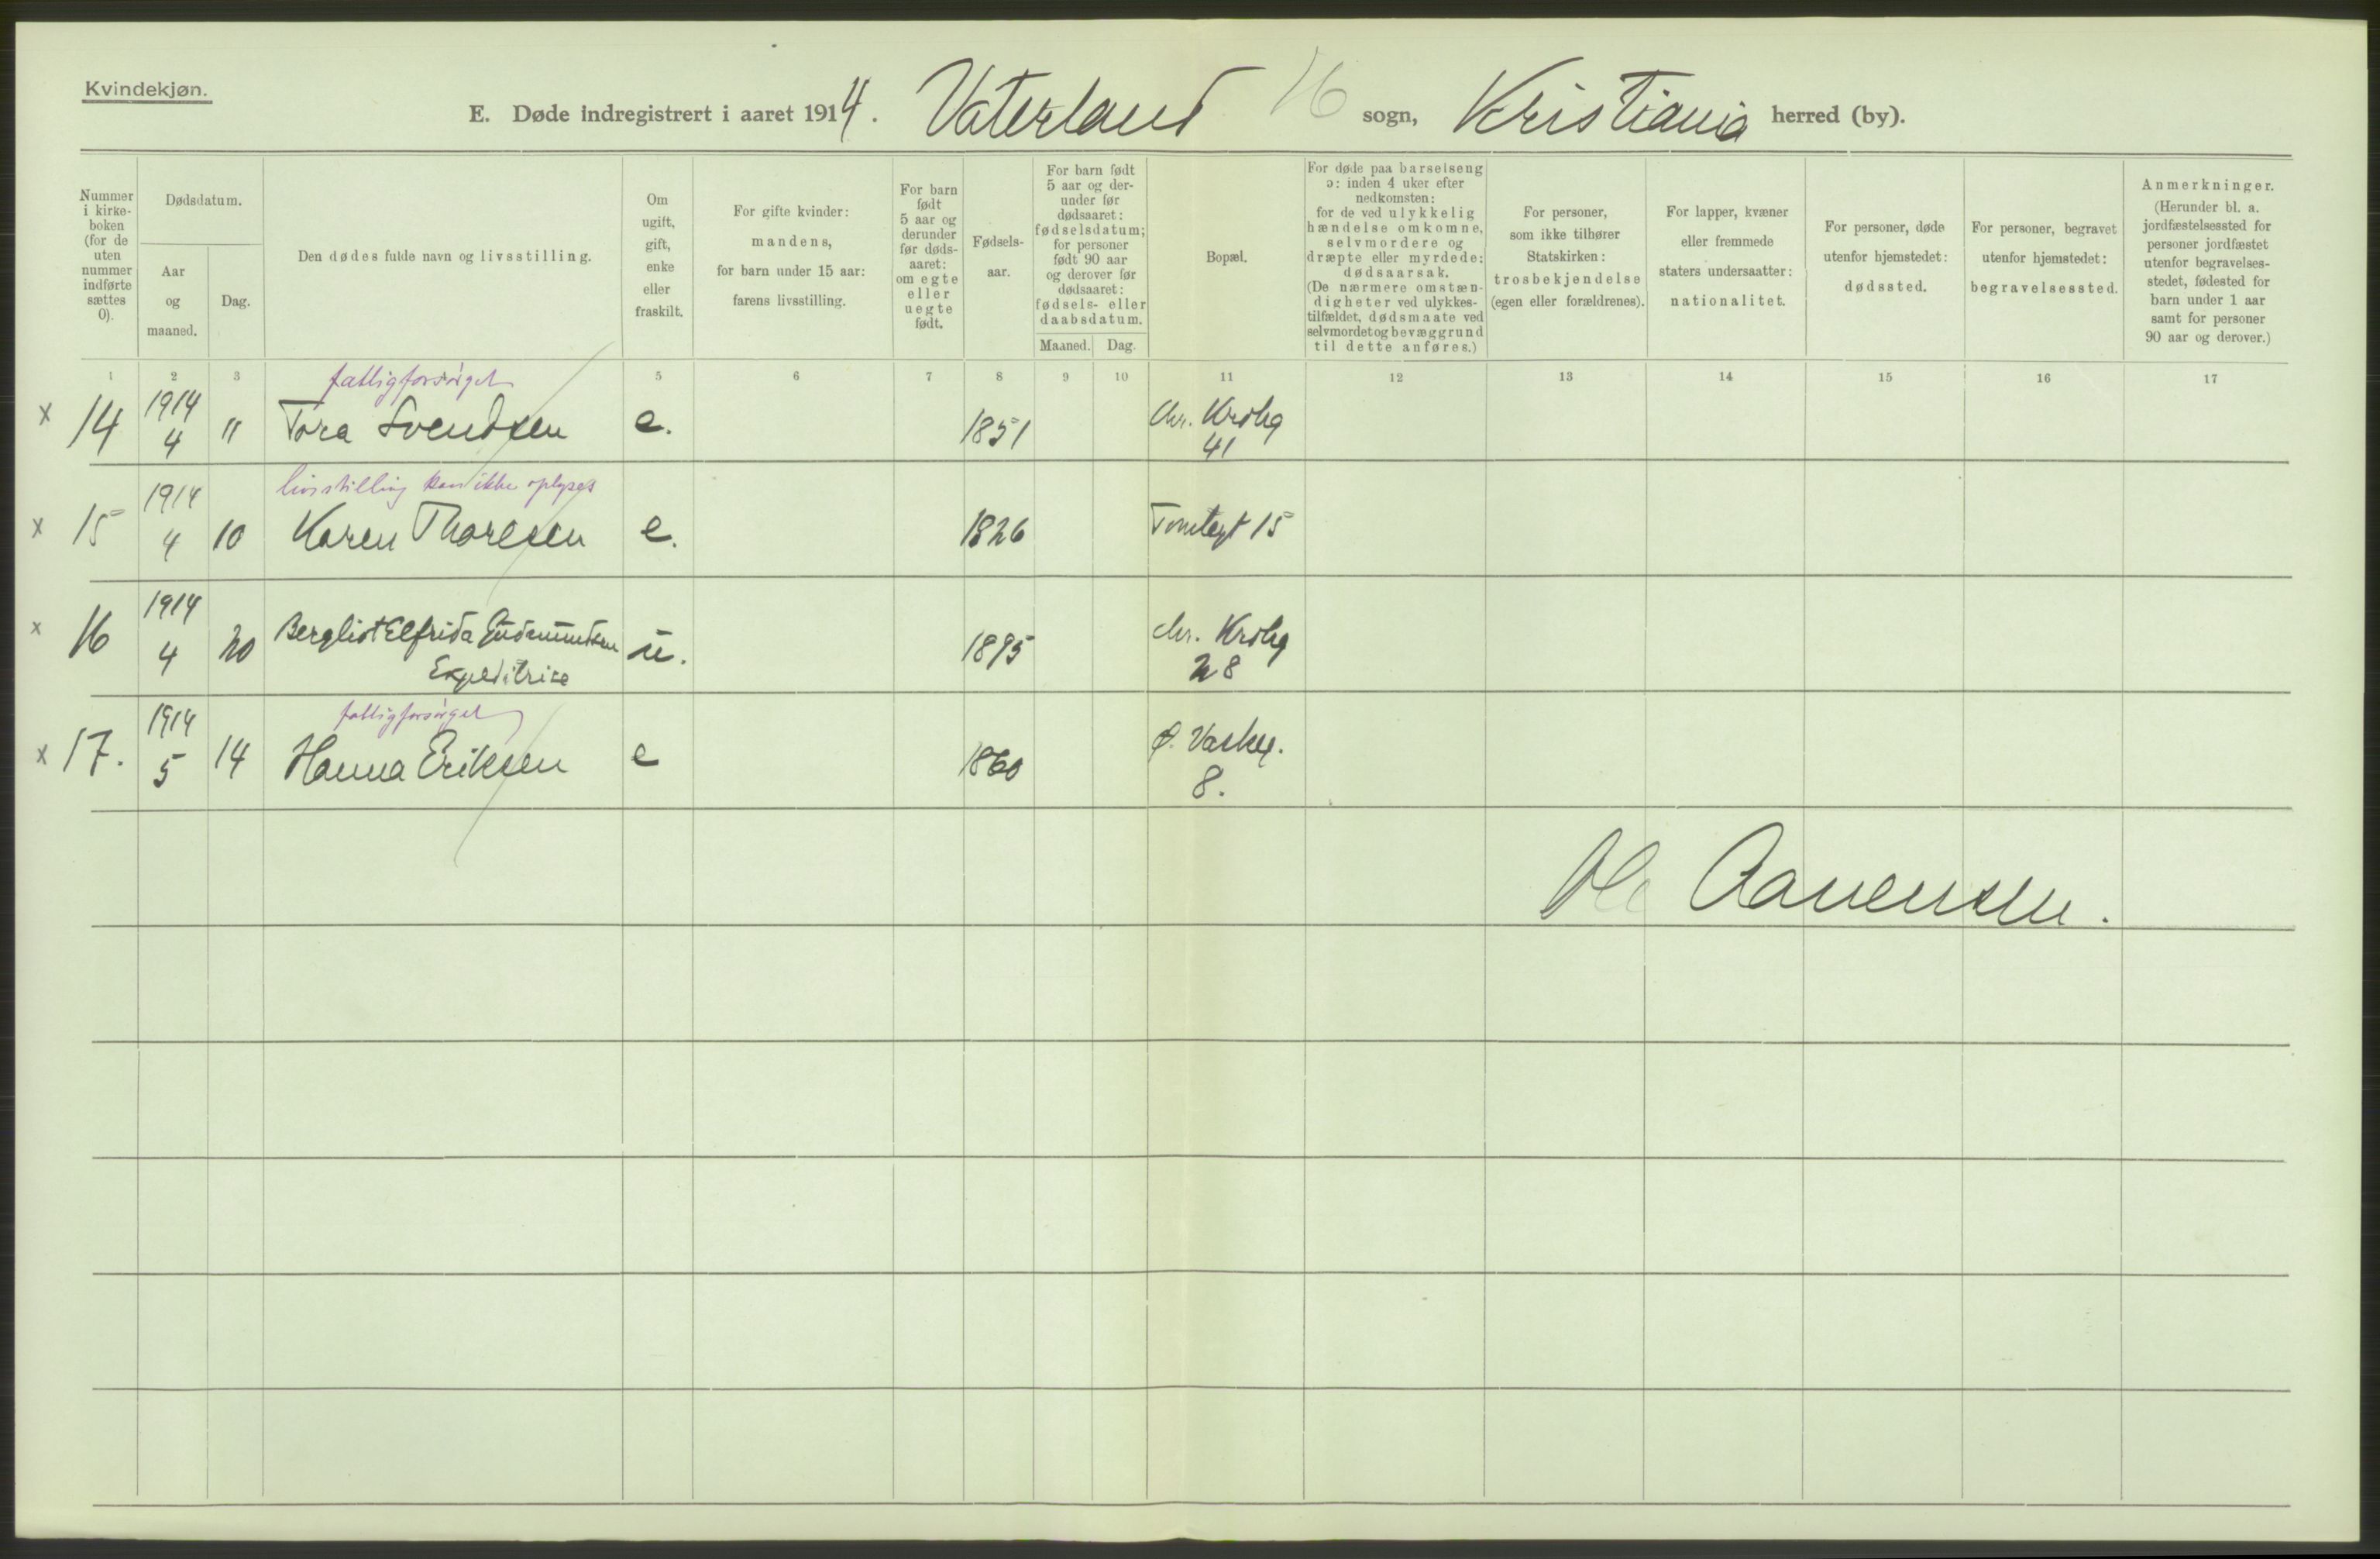 Kvindekjøn.
E. Døde indregistrert i aaret 1914. Vaterland 16 sogn, Kristiania herred (by).
Nummer i kirke-boken (for de uten nummer indførte sættes 0).
Dødsdatum.
Aar og maaned.
Dag.
Den dødes fulde navn og livsstilling.
Om ugift, gift, enke eller fraskilt.
For gifte kvinder: mandens, for barn under 15 aar: farens livsstilling.
For barn født 5 aar og derunder før døds-aaret: om egte eller uegte født.
Fødsels-aar.
For barn født 5 aar og der-under før dødsaaret: fødselsdatum; for personer født 90 aar og derover før dødsaaret: fødsels- eller daabsdatum.
Maaned. Dag.
Bopæl.
For døde paa barselseng ɔ: inden 4 uker efter nedkomsten: for de ved ulykkelig hændelse omkomne, selvmordere og dræpte eller myrdede: dødsaarsak. (De nærmere omstæn-digheter ved ulykkes-tilfældet, dødsmaate ved selvmordet og bevæggrund til dette anføres.)
For personer, som ikke tilhører Statskirken: trosbekjendelse (egen eller forældrenes).
For lapper, kvæner eller fremmede staters undersaatter: nationalitet.
For personer, døde utenfor hjemstedet: dødssted.
For personer, begravet utenfor hjemstedet: begravelsessted.
Anmerkninger. (Herunder bl. a. jordfæstelsessted for personer jordfæstet utenfor begravelses-stedet, fødested for barn under 1 aar samt for personer 90 aar og derover.)
1 2 3 5 6 7 8 9 10 11 12 13 14 15 16 17
fattigforsørget
x 14 1914 4 " Tora Svendsen e. 1851 Chr. Krohg 41
livsstilling kan ikke oplyses
x 15 1914 4 10 Karen Thoresen e. 1826 Tomtegt 15
x 16 1914 4 20 Bergliot Elfrida Gudmundsen u. 1895 Chr. Krohg 28
Expeditrice
fattigforsørget
x 17. 1914 5 14 Hanna Eriksen e 1860 Ø. Vaskeg. 8.
Ole Aanensen.